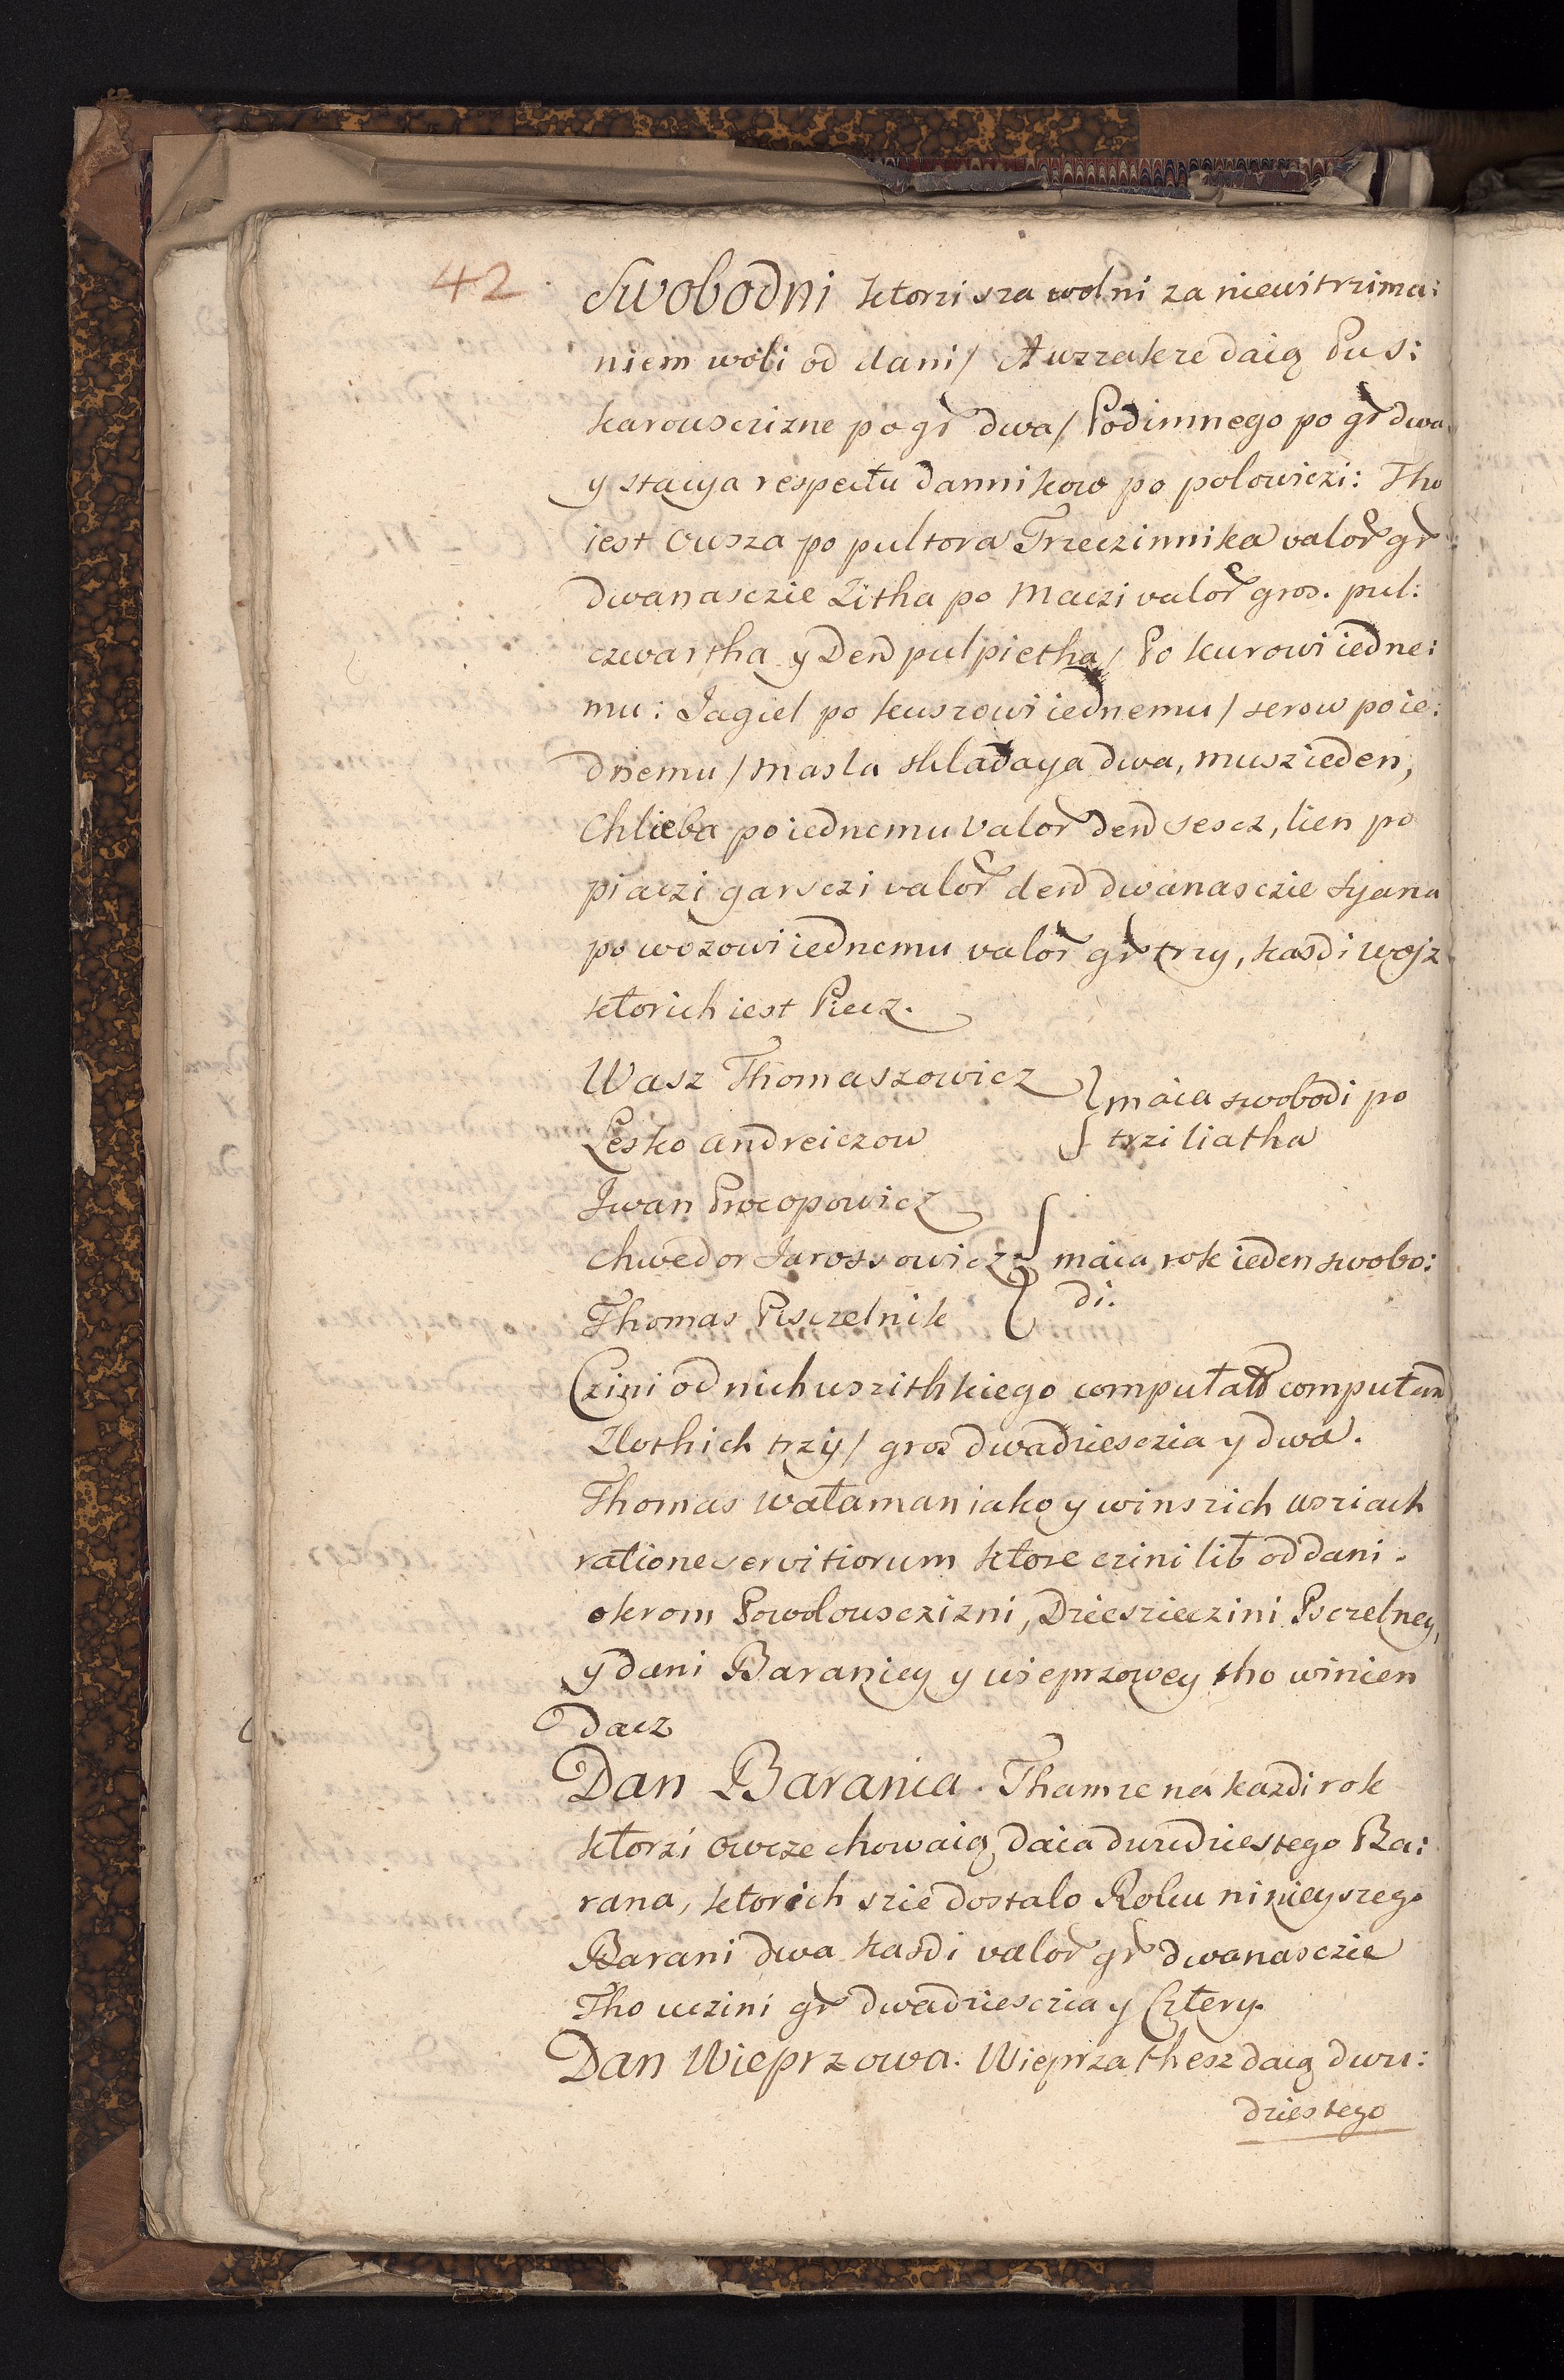 42.
Swobodni ktorzi sza wolni za niewitrzima:
niem woli od dani / A wzzakze daią Pus:
karouscrizne po gr dwa / Podimnego po gr dwa
y stacya respectu dannikow po polowiczi: Tho
iest Owsza po pultora Trzeczinnika valor gr
dwanasczie Zitha po Maczi valor gros. pul:
czwartha y Den pulpietha / Po kurowi iedne:
mu: Jagiel po kuszowi iednemu / serow po ie:
dnemu / masla skladaya dwa, musz ieden,
Chlieba po iednemu valor den sescz, lien po
piaczi garsczi valor den dwanasczie Syana
po wozowi iednemu valor gr trzy, kasdi wojz
ktorich iest Piecz.
Wasz Thomaszowicz
Lesko andreiczow
maia swobodi po
trzi liatha
Iwan Procopowicz
Chwedor Jarossowicz
Thomas Psczelnik
maia rok ieden swobo:
di.
Czini od nich uszithkiego computatis computan
Zlothich trzy / gros dwadziesczia y dwa.
Thomas Wataman iako y winszich wsziach
ratione servitiorum ktore czini lib od dani.
okrom Powolousczizni, Dziesziecziny Psczelney,
y dani Baraniey y wieprzowey tho winien
dacz
Dan Barania. Thamze na kazdi rok
ktorzi owcze chowaią daia dwudziestego Ba:
rana, ktorich szie dostalo Roku ninieyszego
Barani dwa kasdi valor gr dwanasczie
Tho uczini gr dwadziesczia y Cztery.
Dan Wieprzowa. Wieprza thesz daią dwu:
dziestego